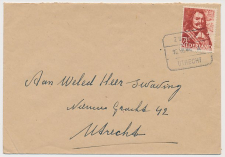 Aan Weled Heer Swaving
Nieuwe Gracht 42
Utrecht
UTRECHT